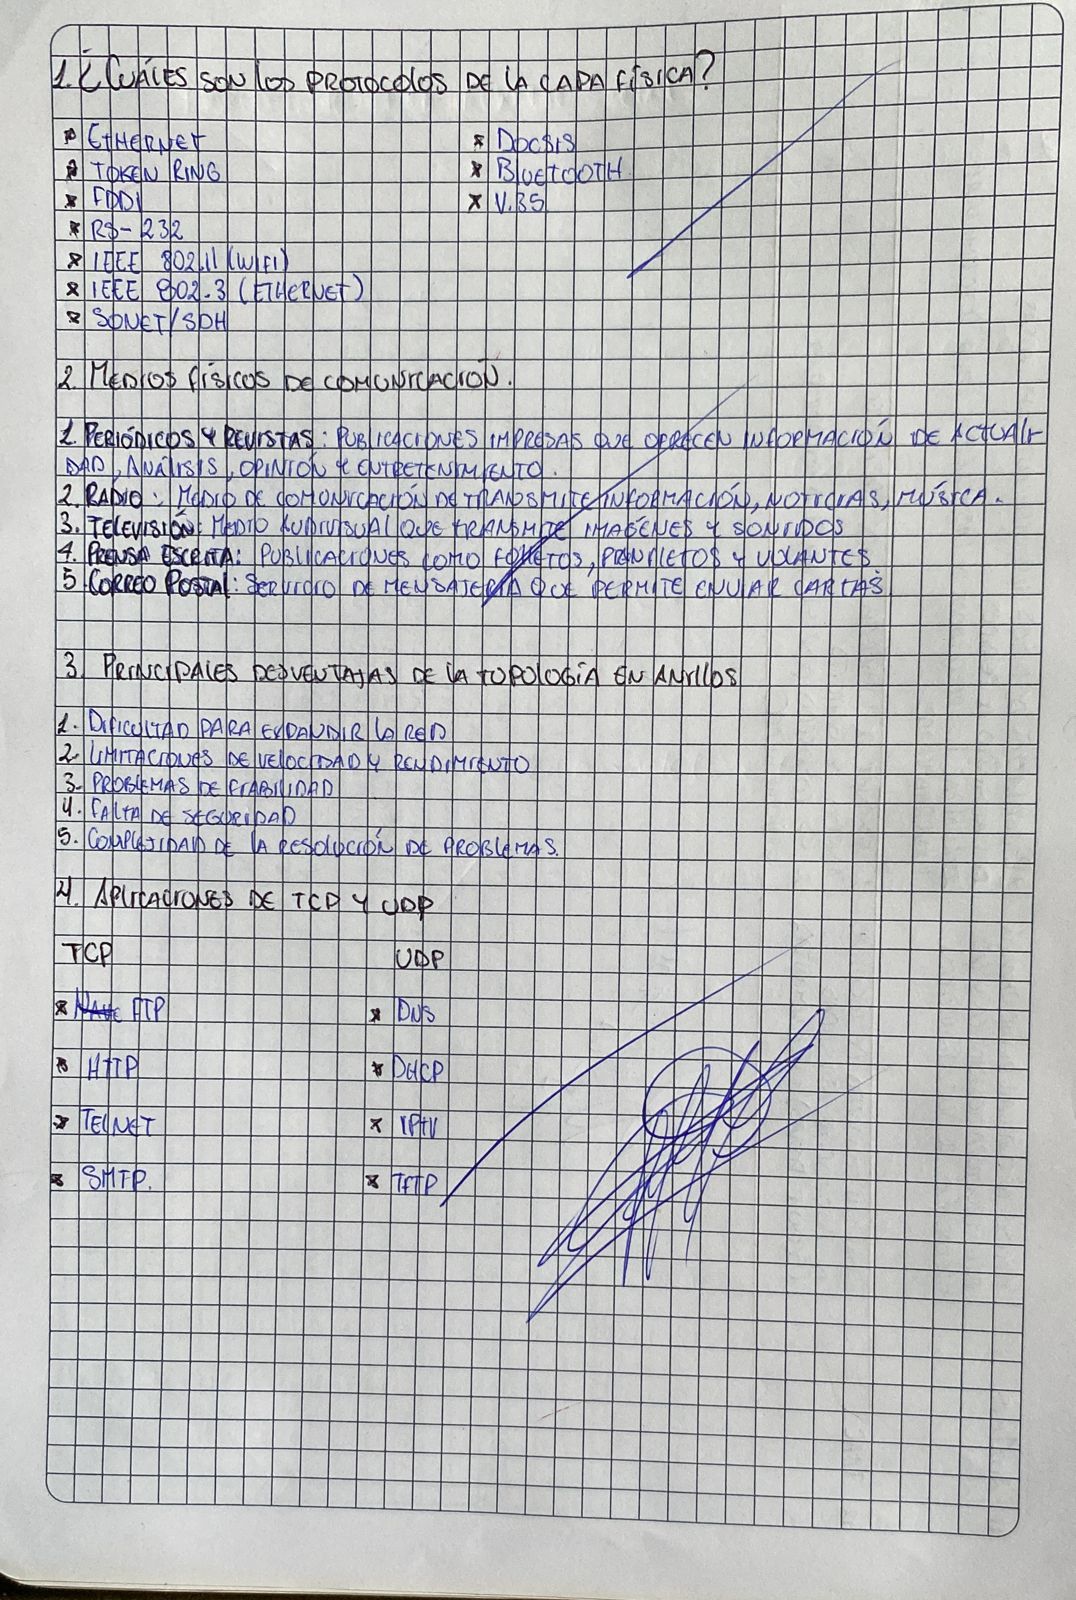 1. ¿CUÁLES SON LOS PROTOCOLOS DE LA CAPA FÍSICA?
* ETHERNET
* TOKEN RING
* FDDI
* RS-232
* IEEE 802.11 (WIFI)
* IEEE 802.3 (ETHERNET)
* SONET/SDH
* DOCSIS
* BLUETOOTH
* V.35
2. MEDIOS FÍSICOS DE COMUNICACIÓN.
1. PERIÓDICOS Y REVISTAS: PUBLICACIONES IMPRESAS QUE OFRECEN INFORMACIÓN DE ACTUALI-
DAD, ANÁLISIS, OPINIÓN Y ENTRETENIMIENTO.
2. RADIO: MEDIO DE COMUNICACIÓN DE TRANSMITE INFORMACIÓN, NOTICIAS, MÚSICA.
3. TELEVISIÓN: MEDIO AUDIVISUAL QUE TRANSMITE IMAGÉNES Y SONIDOS
4. PRENSA ESCRITA: PUBLICACIONES COMO FOLLETOS, PANFLETOS Y VOLANTES
5. CORREO POSTAL: SERVICIO DE MENSAJERÍA QUE PERMITE ENVIAR CARTAS
3. PRINCIPALES DESVENTAJAS DE LA TOPOLOGÍA EN ANILLOS
1. DIFICULTAD PARA EXPANDIR LA RED
2. LIMITACIONES DE VELOCIDAD Y RENDIMIENTO
3. PROBLEMAS DE FIABILIDAD
4. FALTA DE SEGURIDAD
5. COMPLEJIDAD DE LA RESOLUCIÓN DE PROBLEMAS.
4. APLICACIONES DE TCP Y UDP
TCP
* FTP
* HTTP
* TELNET
* SMTP.
UDP
* DNS
* DHCP
* IPTV
* TFTP